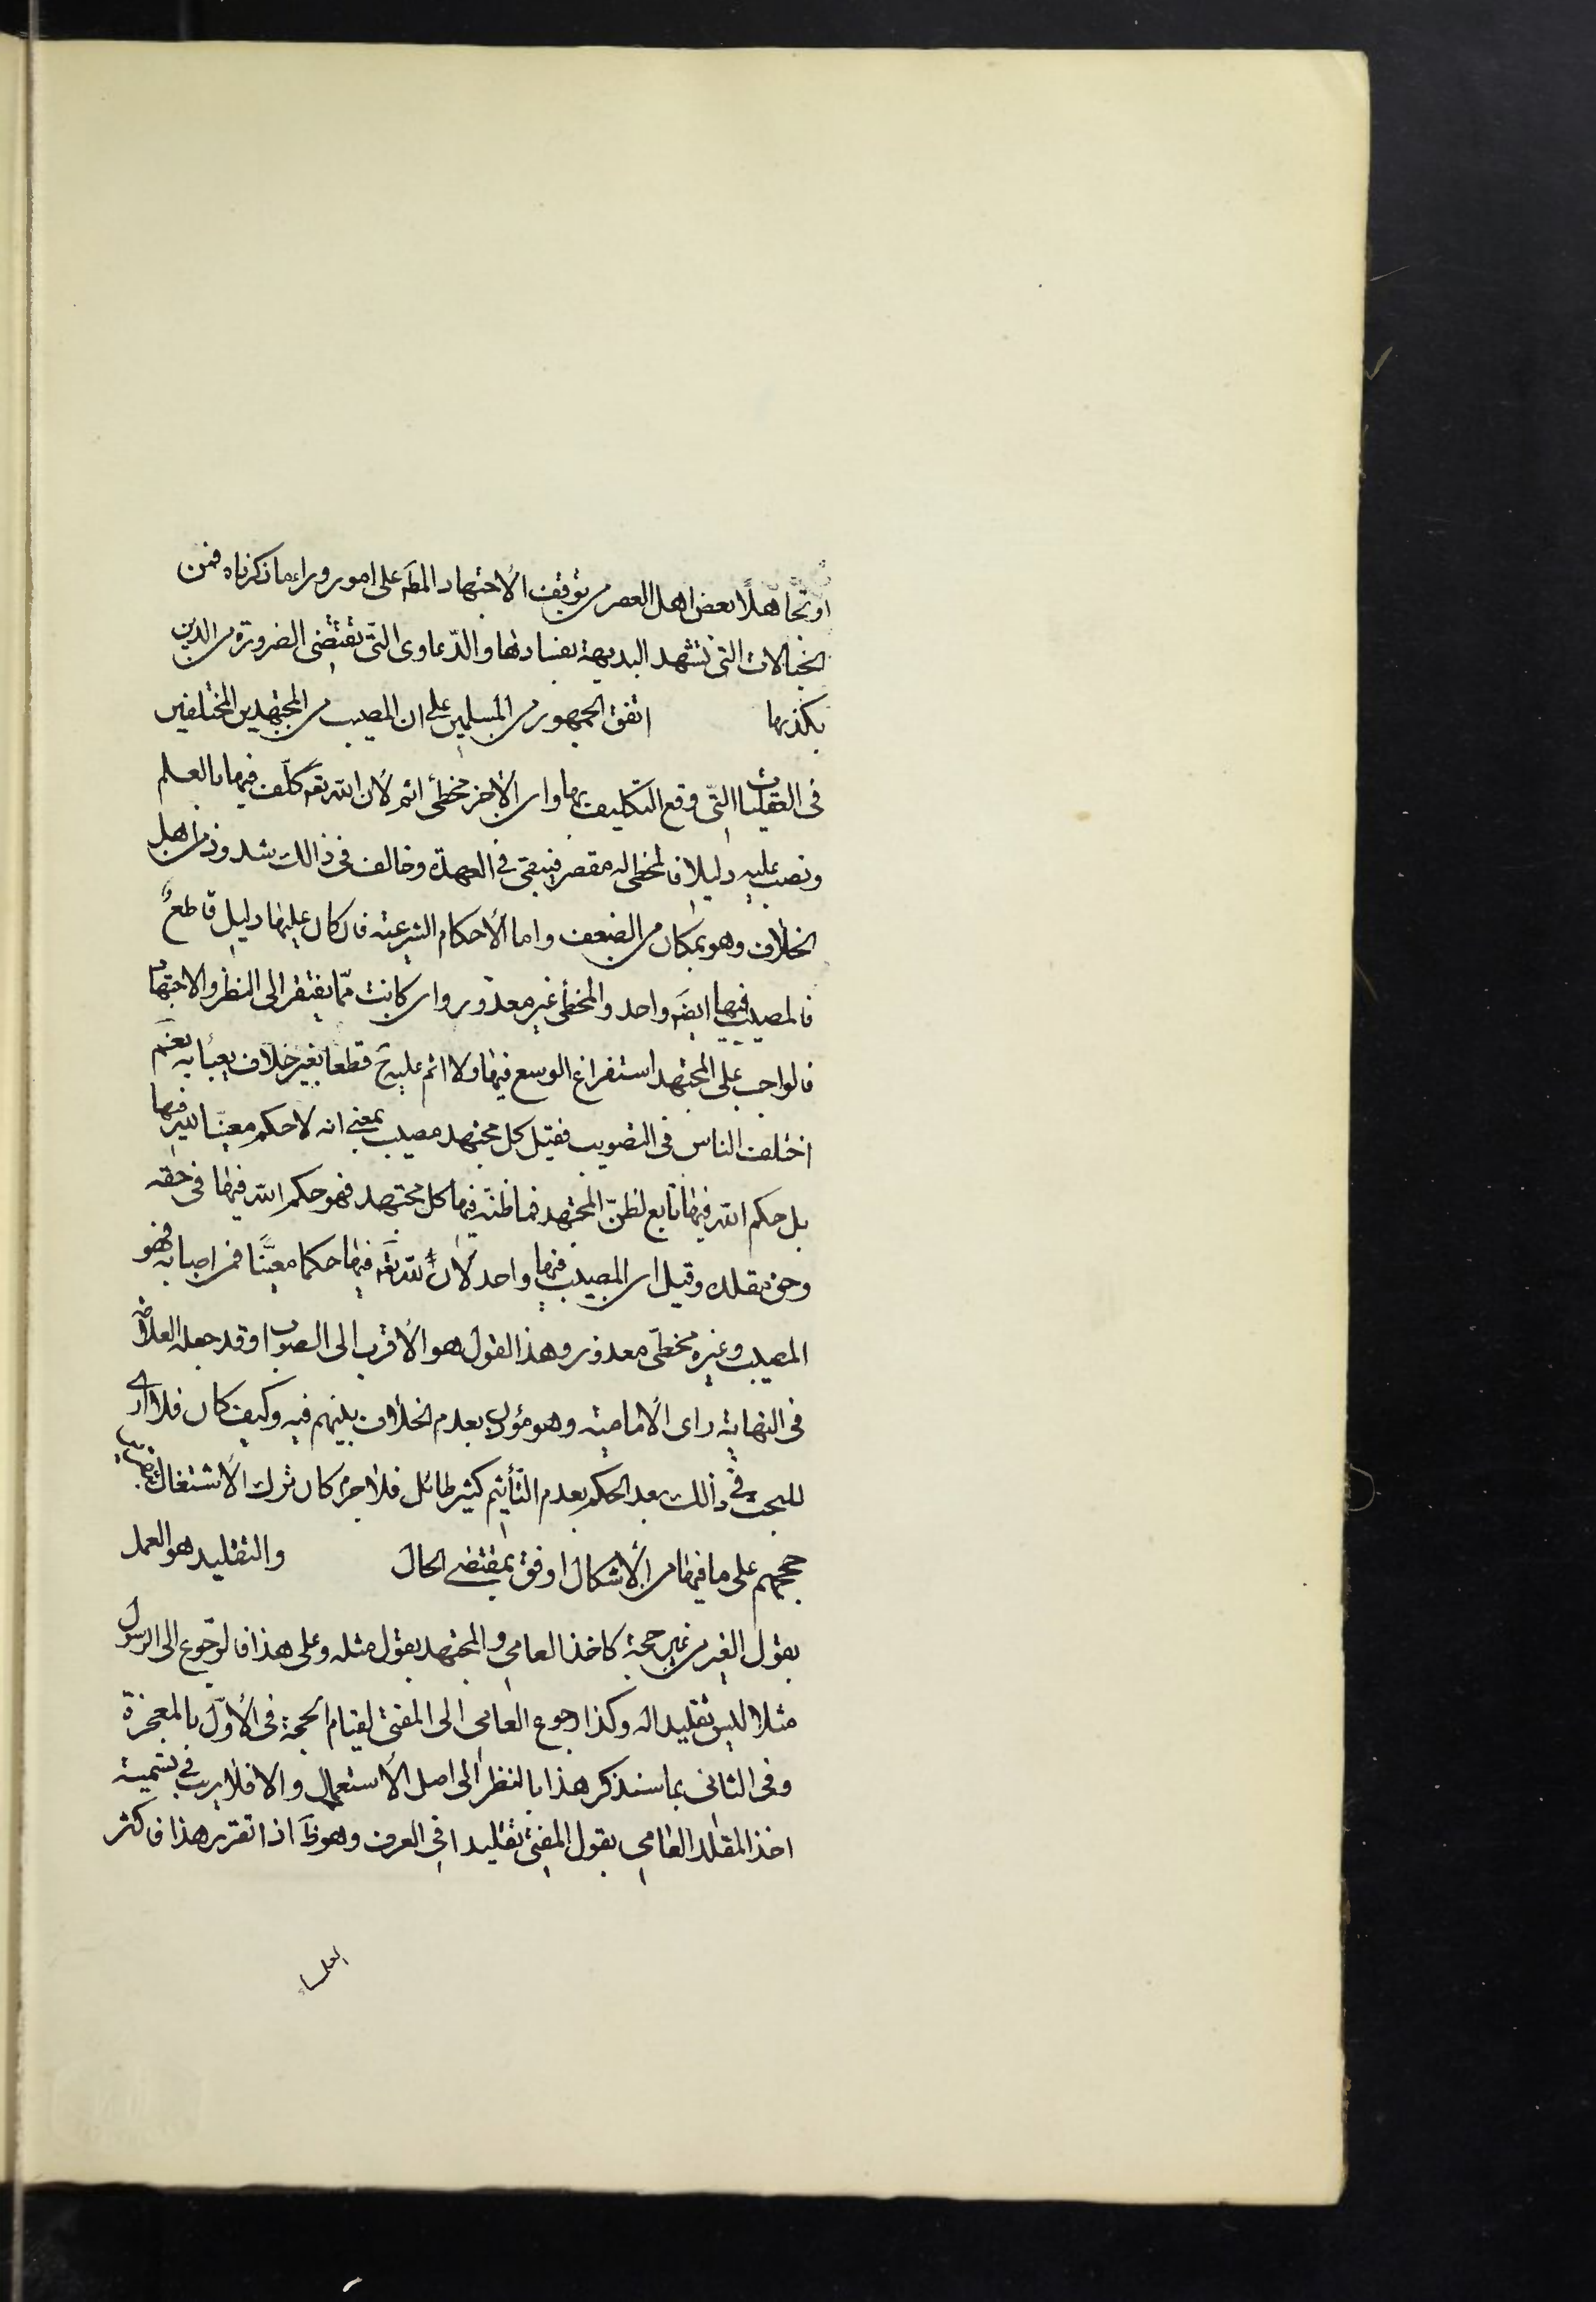 او تجاهلا بعض اهل العصر من توقف الاجتهاد المط على امور وراء ما ذكرناه فمن
الخيالات التى تشهد البديهة بفسادها والدّعاوى التّى تقتضى الضرورة من الدين
بكذبها اتفق الجمهور من المسلمين على ان المصيب من المجتهدين المختلفين
فى العقليات التّى وقع التكليف بها واحد وان الآخر مخطئ اثم لان الله تع كلّف فيها بالعلم
ونصب عليه دليلا فالمخطى له مقصر فيبقى فى العهدة وخالف فى ذالك شذوذ من اهل
الخلاف وهو بمكان من الضعف واما الاحكام الشرعيّه فان كان عليها دليل قاطعٌ
فالمصيب فيها ايضَه واحد والمخطئ غير معذور وان كانت ممّا يفتقر الى النظر والاجتهاد
فالواجب على المجتهد استفراغ الوسع فيها ولا اثم عليه ح قطعا بغير خلاف يعبأ به نعم
اختلف الناس فى التصويب فقيل كل مجتهد مصيب بمعنى انه لا حكم معيّنا لله فيها
بل حكم الله فيها تابع لظنّ المجتهد فما ظنّه فيها كل مجتهد فهو حكم الله فيها فى حقه
وحق مقلده وقيل ان المصيب فيها واحد لانّ لله تعَه فيها حكما معيّنًا فمن اصابه فهو
المصيب وغيره مخطئ معذور وهذا القول هو الاقرب الى الصواب وقد جعله العلامة
فى النهاية راى الامامية وهو مؤذن بعدم الخلاف بينهم فيه وكيف كان فلا ارى
للبحث فى ذالك بعد الحكم بعدم التّأثيم كثير طائل فلا جرم كان ترك الاشتغال بتقرير
حججهم على ما فيها من الاشكال اوفق بمقتضى الحال والتقليد هو العمل
بقول الغير من غير حجة كاخذ العامى والمجتهد بقول مثله وعلى هذا فالرّجوع الى الرسول
مثلا ليس تقليدا له وكذا رجوع العامى الى المفتى لقيام الحجة فى الاوّل بالمعجزة
وفى الثانى بما سنذكر هذا بالنظر الى اصل الاستعمال والا فلا ريب فى تسمية
اخذ المقلد العامى بقول المفتى تقليدا فى العرف وهو ظ اذا تقرر هذا فاكثر
العلماء